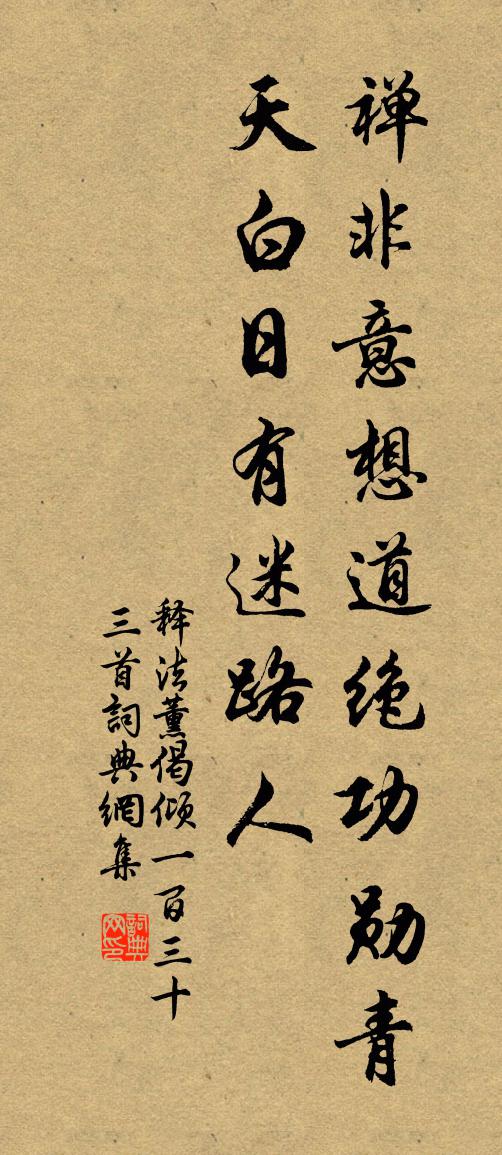 禅非意想道绝功勋青
天白日有迷路人
释法薰偈倾一百三十
三首詞典網集
詞典网印